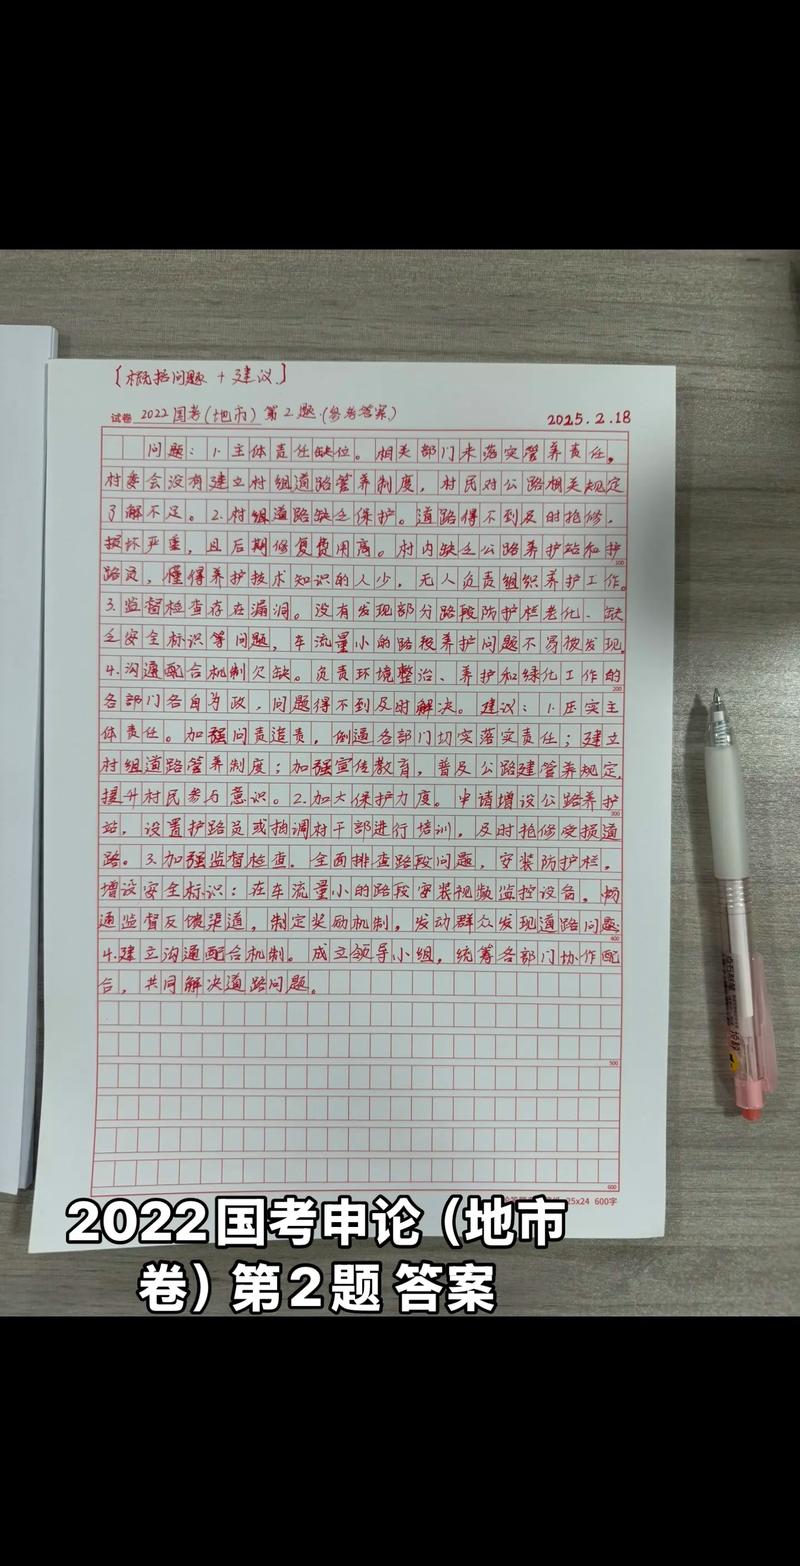 [概括问题 + 建议]
试卷 2022国考(地市)第2题.(参考答案) 2025.2.18
问题：1.主体责任缺位。相关部门未落实管养责任，
村委会没有建立村组道路管养制度，村民对公路相关规定
了解不足。2.村组道路缺乏保护。道路得不到及时抢修，
损坏严重，且后期修复费用高。村内缺乏公路养护站和护
100
路员，懂得养护技术知识的人少，无人负责组织养护工作。
3.监督检查存在漏洞。没有发现部分路段防护栏老化、缺
乏安全标识等问题，车流量小的路段养护问题不易被发现。
4.沟通配合机制欠缺。负责环境整治、养护和绿化工作的
200
各部门各自为政，问题得不到及时解决。建议：1.压实主
体责任。加强问责追责，倒逼各部门切实落实责任；建立
村组道路管养制度；加强宣传教育，普及公路建管养规定，
提升村民参与意识。2.加大保护力度。申请增设公路养护
300
站，设置护路员或抽调村干部进行培训，及时抢修受损道
路。3.加强监督检查。全面排查路段问题，安装防护栏，
增设安全标识；在车流量小的路段安装视频监控设备。畅
通监督反馈渠道，制定奖励机制，发动群众发现道路问题。
400
4.建立沟通配合机制。成立领导小组，统筹各部门协作配
合，共同解决道路问题。
500
600
25x24 600字
2022国考申论（地市
卷）第2题 答案